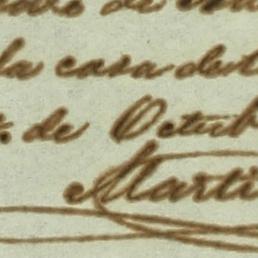 de
la casa de
de Octub
Marti